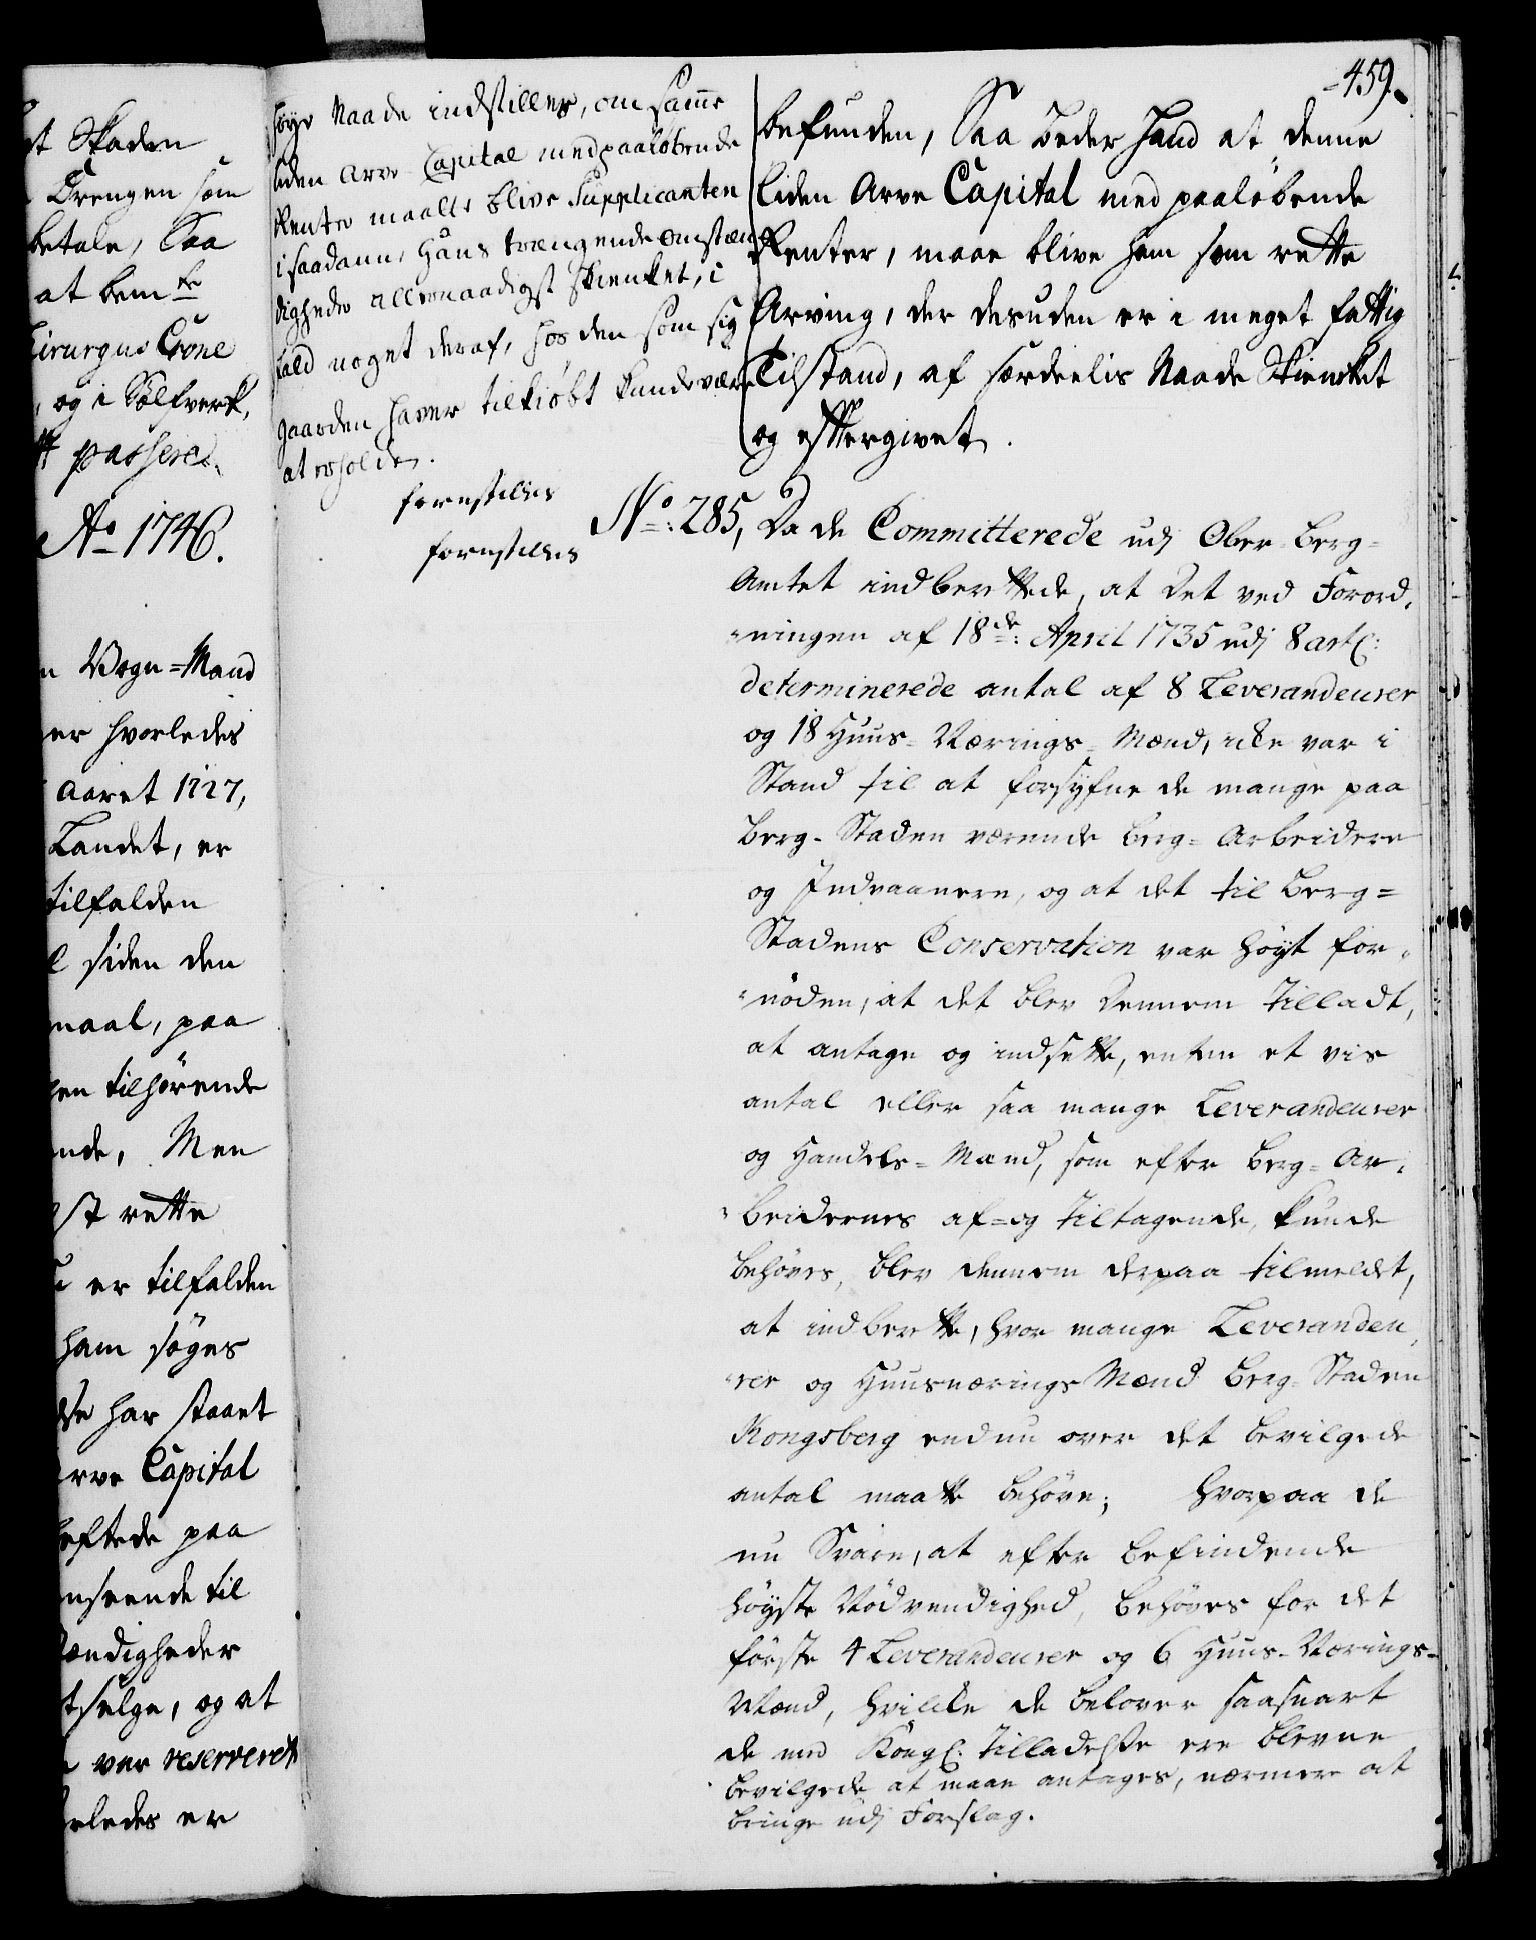 st Skaden
Drengen som
betale, Saa
at bem.te
hirurgus Crone
, og i Sølfverk,
passere.
Ao 1746.
n Vogn=Mand
er hvorledes
Aaret 1727,
Landet, er
tilfalden
siden den
maal, paa
en tilhörende
nde, Men
rette
er tilfalden
ham söges
har staaet
rve Capital
heftede paa
nseende til
tændigheder
tselge, og at
var reserveret
rledes er
höye Naade indstilles, om samme
liden Arve-Capital med paalöbende
Renter maatte blive Supplicanten
i saadanne Hans trængende omstæn-
digheder allernaadigst skienket, i
fald noget deraf, hos den som sig
gaarden haver tilkiöbt kunde være
at erholde.
forestilles
forestilles
459.
befunden, Saa beder Hand at denne
liden Arve Capital med paalöbende
Renter, maae blive ham som rette
Arving, der desuden er i meget fattig
Tilstand, af særdeelis Naade Skienket
og eftergivet.
No: 285, Da de Committerede udj Ober-Berg=
Amtet indberettede, at det ved Forord,
"ningen af 18de: April 1735 udj 8 artl:
determinerede antal af 8 Leverandeurer
og 18 Huus-Nærings-Mænd, icke var i
Stand til at forsyfne de mange paa
Berg-Staden værende Berg-Arbeidere
og Indvaanere, og at det til Berg=
Stadens Conservation var höyt for,
"nöden, at det blev dennem tilladt,
at antage og indsette, enten et vis
antal eller saa mange Leverandeurer
og Handels=Mænd, som efter Berg=Ar,
"beidernes af=og tiltagende, kunde
behöves, blev dennem derpaa tilmeldt,
at indberette, hvor mange Leverandeu,
"rer og Huusnærings Mænd Berg-Staden
Kongsberg endnu over det bevilgede
antal maatte behöve; hvorpaa de
nu Svare, at efter befindende
höyste Nödvendighed, behöves for det
förste 4 Leverandeurer og 6 Huus-Nærings-
Mænd, hvilcke de belover saasnart
de med Kongl: Tilladelse ere blevne
bevilgede at maae antages, nærmere at
bringe udj Forslag.